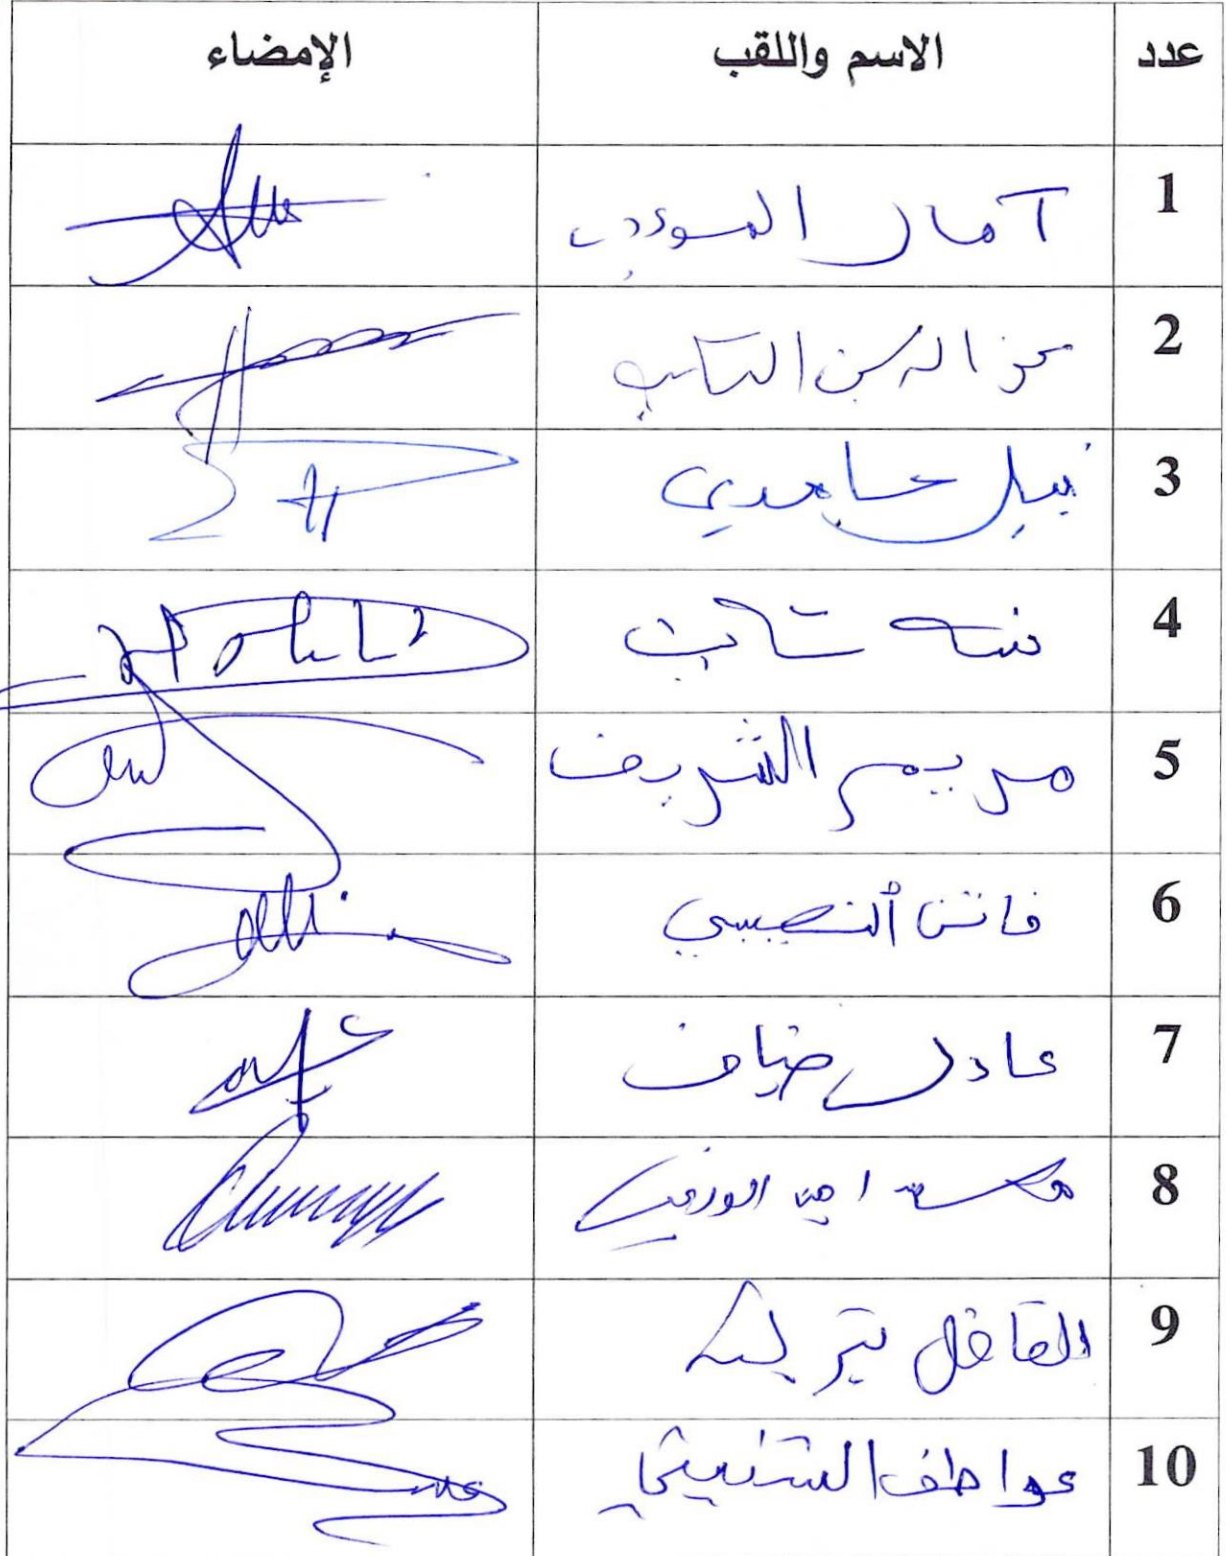 عدد الاسم واللقب الإمضاء
1 آمال المسودي
2 عز الدين التايب
3 نبيل حامدي
4 شابي
5 مريم الشريف
6 فاتن النصيبي
7 عادل ضياف
8 محمد امين الورغي
9 الفاضل بن
10 عواطف الشنيتي